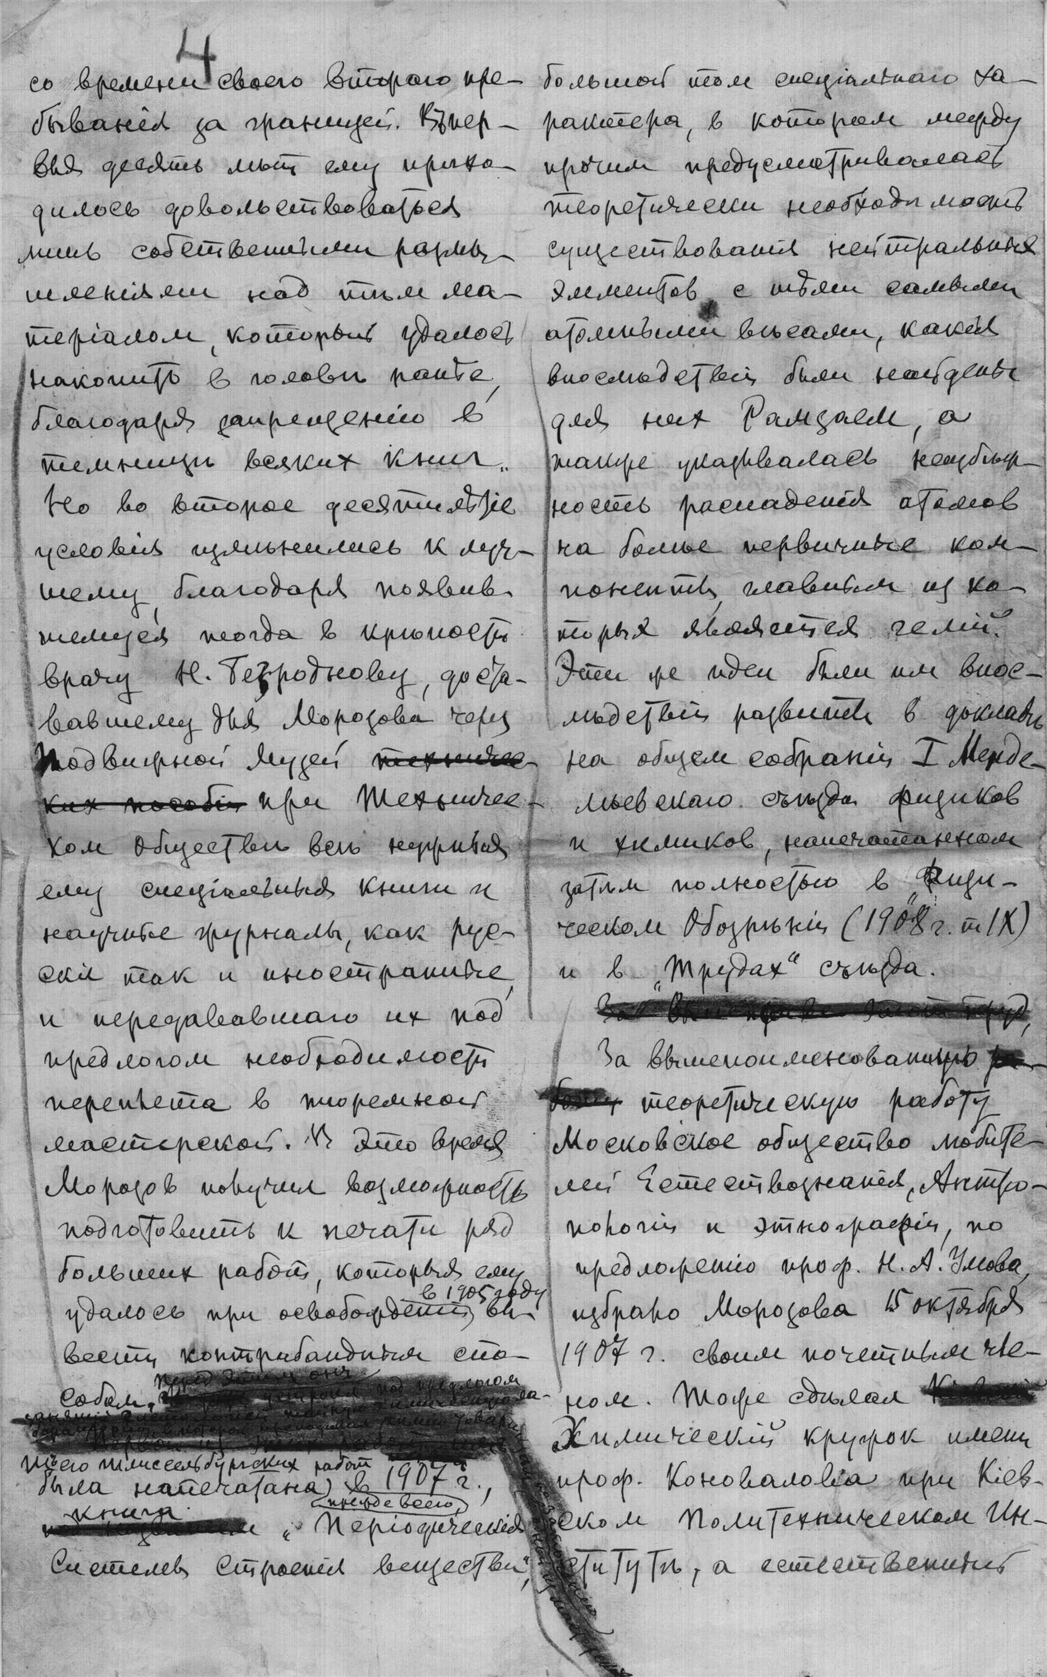 4
со времени своего второго пре-
быванія за границей. Въ пер-
выя десять лѣт ему прихо-
дилось довольствоваться
лишь собственными размы-
шленіями над тѣм ма-
теріалом, который удалось
накопить в головѣ ранѣе,
благодаря запрещенію в
темницѣ всяких книг.
Но во второе десятилѣтіе
условія измѣнились к луч-
шему, благодаря появив-
шемуся тогда в крѣпости
врачу Н. Безроднову, доста-
вавшему для Морозова через
Подвижной Музей техничес-
ких пособій при Техничес-
ком Обществѣ всѣ нужныя
ему спеціальныя книги и
научные журналы, как рус-
скіе так и иностранные,
и передававшаго их под
предлогом необходимости
переплета в тюремной
мастерской. В это время
Морозов получил возможность
подготовить к печати ряд
больших работ, которыя ему
в 1905 году
удалось при освобожденіи вы-
вести контрабандным спо-
собом.
Из его шлиссельбургских работ
была напечатана в 1907 г.,
прежде всего,
книга „Періодическія
Системы Строенія вещества",
большой том спеціальнаго ха-
рактера, в котором между
прочим предусматривалась
теоретически необходимость
существованія нейтральных
элементов с тѣми самыми
атомными вѣсами, какія
впослѣдствіи были найдены
для них Рамзаем, а
также указывалась неизбѣж-
ность распаденія атомов
на болѣе первичные ком-
поненты, главным из ко-
торых является гелій.
Эти же идеи были им впос-
лѣдствіи развиты в докладѣ
на общем собраніи I Менде-
лѣевскаго съѣзда физиков
и химиков, напечатанном
затѣм полностью в „Физи-
ческом Обозрѣніи (1908 г. т IX)
и в „Трудах" съѣзда.
За вышепоименованную ра-
боту теоретическую работу
Московское общество любите-
лей Естествознанія, Антро-
пологіи и этнографіи, по
предложенію проф. Н. А. Умова,
избрало Морозова 15 октября
1907 г. своим почетным чле-
ном. Тоже сдѣлал
Химическій кружок имени
проф. Коновалова при Кіев-
ском Политехническом Ин-
ститутѣ, а естественный